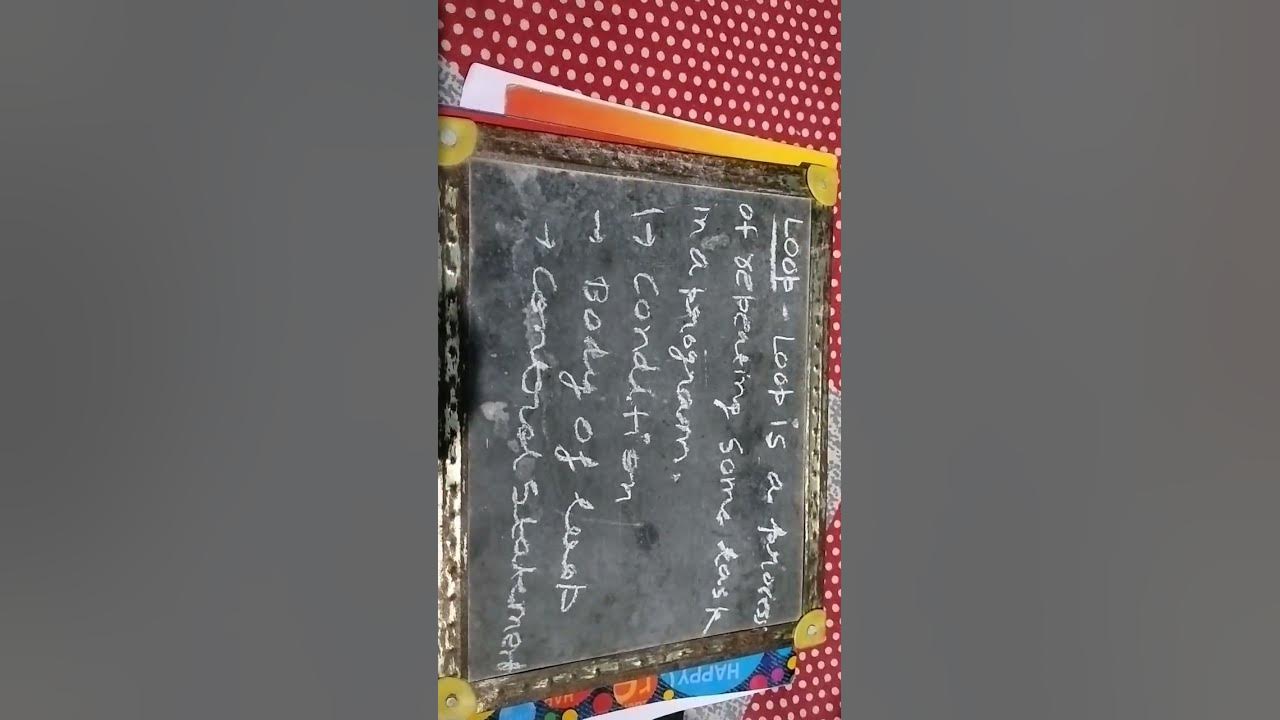 Loop - Loop is a process
of repeating some task
in a program.
1→ Condition
→ Body of Loop
→ Control Statement
HAPPY